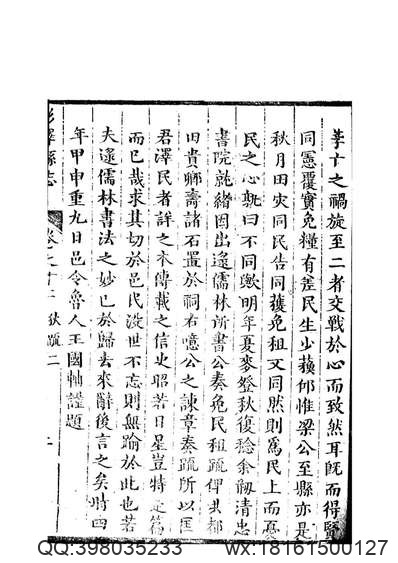 孥亡之禍旋至二者交戰於心而致然耳旣而得賢
同憲覆實免糧有差民生少蘓仰惟梁公至縣亦是
秋月田灾同民告同獲免租又同然則爲民上而憂
民之心孰曰不同歟明年夏麥登秋復稔余剏清忠
書院訖繪圖出遂儒林所書公奏免民租疏俾共都
旧貴鄉壽諸石置於祠右噫公之諫章奏疏所以匡
君澤民者詳之本傳載之信史昭若日星豈特是篇
而已哉求其切於邑民没世不忘則無踰於此也若
夫遂儒林書法之妙已於歸去來辭後言之矣時
年甲申重九日邑令魯人王國軸謹題
彭澤縣志
卷之十二
二
QQ:398035233 wx:18161500127